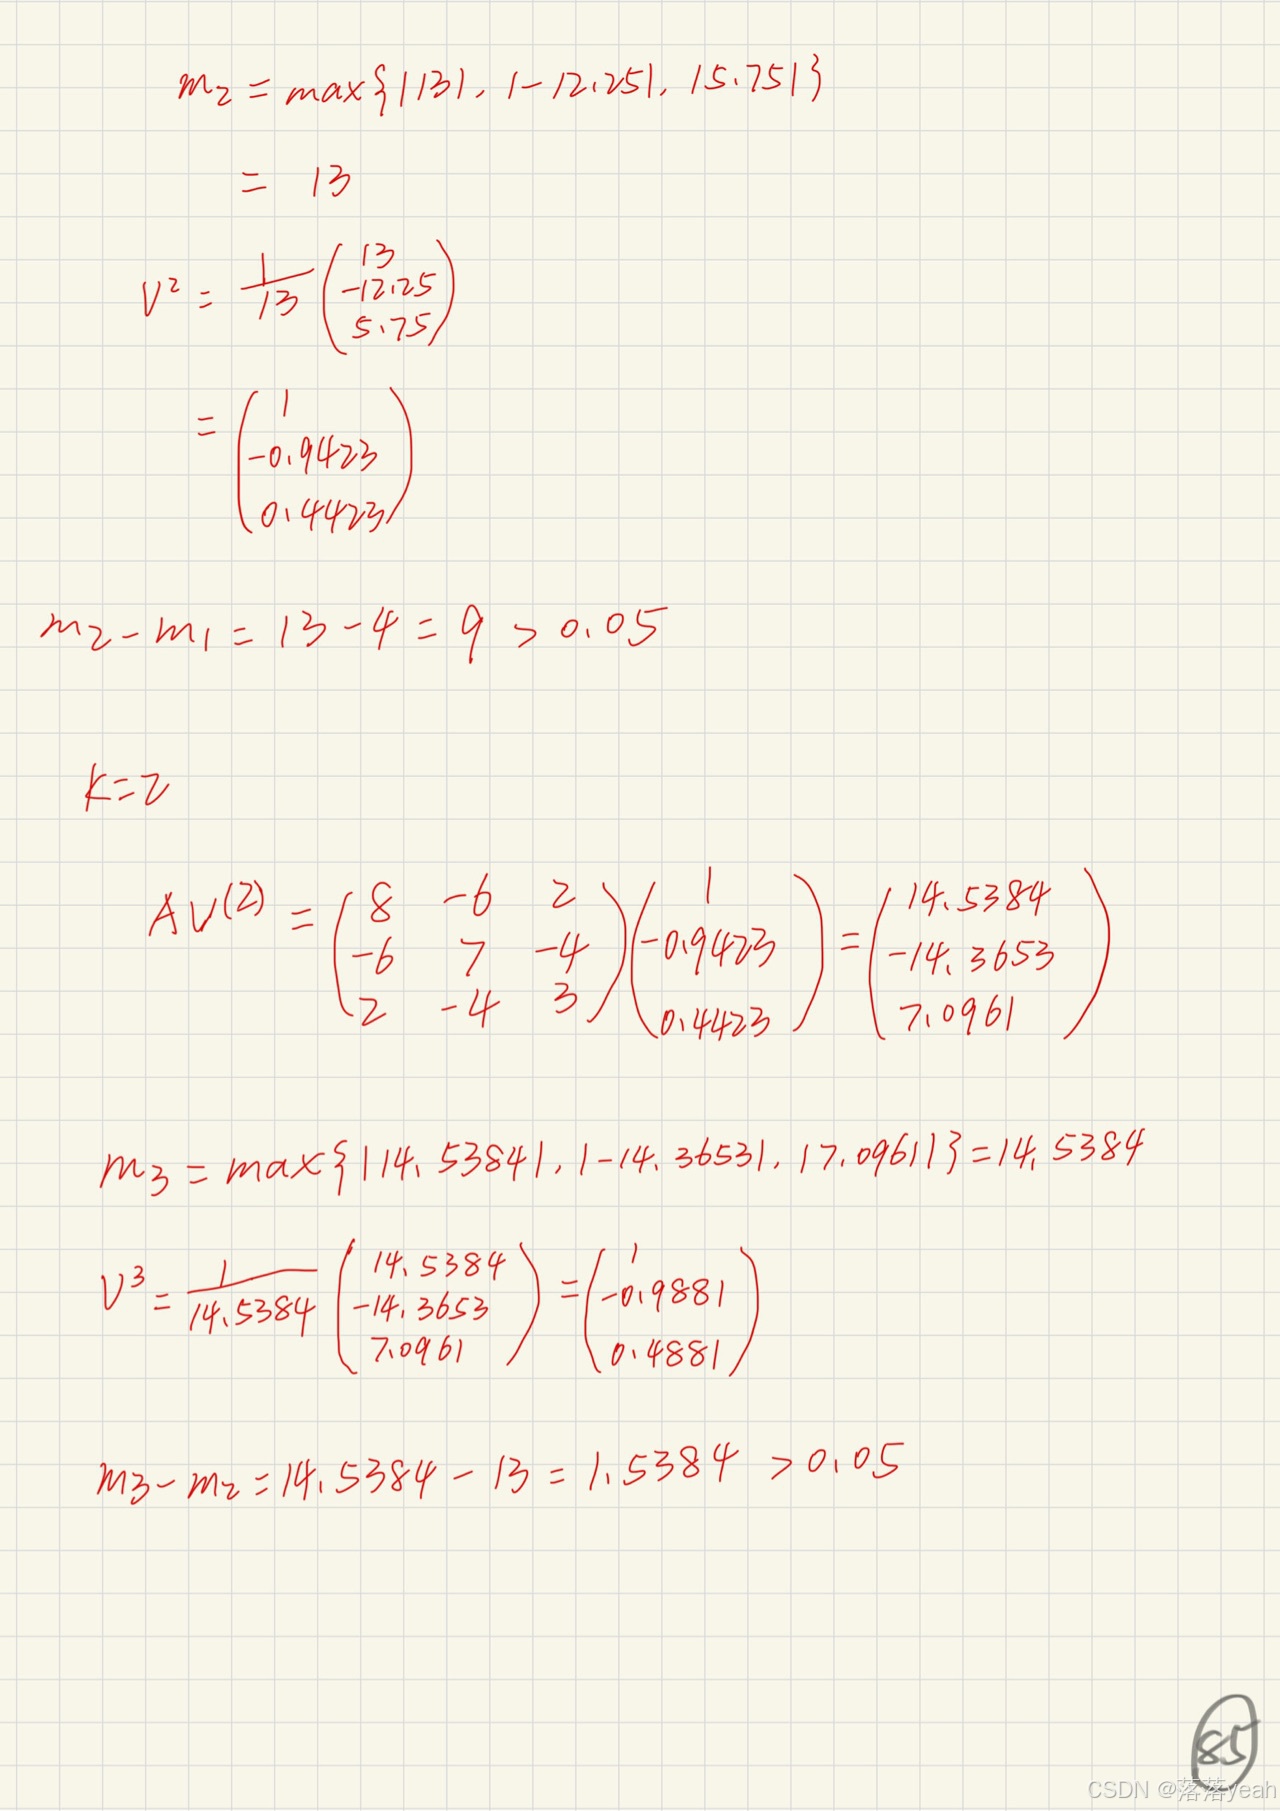 m₂ = max{|13|, |-12.25|, |5.75|}
= 13
V² = 1/13 (13 -12.25 5.75)
= (1 -0.9423 0.4423)
m₂ - m₁ = 13 - 4 = 9 > 0.05
K=2
AV⁽²⁾ = (8 -6 2 / -6 7 -4 / 2 -4 3) (1 -0.9423 0.4423) = (14.5384 -14.3653 7.0961)
m₃ = max{|14.5384|, |-14.3653|, |7.0961|} = 14.5384
V³ = 1/14.5384 (14.5384 -14.3653 7.0961) = (1 -0.9881 0.4881)
m₃ - m₂ = 14.5384 - 13 = 1.5384 > 0.05
85
CSDN @落落yeah